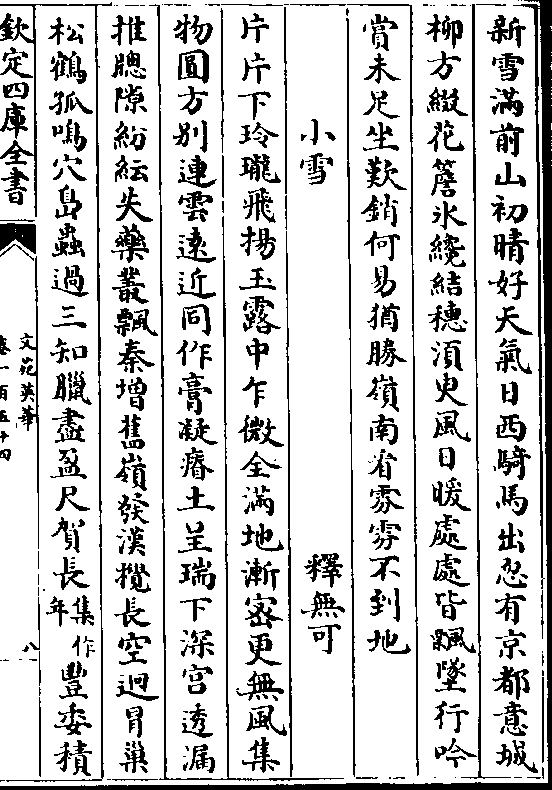 新雪滿前山初晴好天氣日西騎馬出忽有京都意城
柳方綴花簷氷纔結穗湏臾風日暖處處皆飄墜行吟
賞未足坐歎銷何易猶勝嶺南看雰雰不到地
小雪　釋無可
片片下玲瓏飛揚玉露中乍微全滿地漸密更無風集
物圓方别連雲遠近同作膏凝瘠土呈瑞下深宫透漏
推牎隙紛紜失藥叢飄秦增舊嶺發漢攪長空迥冒巢
松鶴孤鳴穴島蟲過三知臘盡盈尺賀長集作年豐委積
欽定四庫全書　文苑英華　卷一百五十四　八